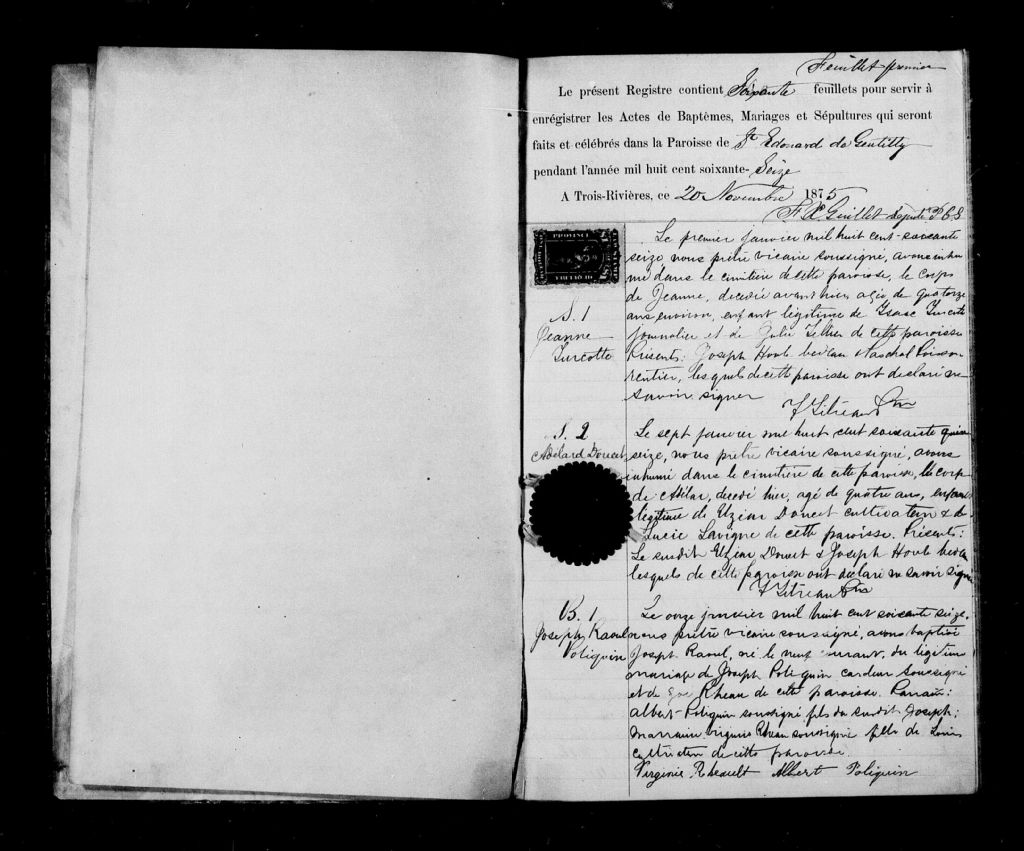 Feuillet premier
Le présent Registre contient Soixante feuillets pour servir à
enrégistrer les Actes de Baptêmes, Mariages et Sépultures qui seront
faits et célébrés dans la Paroisse de St Edouard de Gentilly
pendant l'année mil huit cent soixante-Seize
A Trois-Rivières, ce 20 Novembre 1875
F. X. Guillet
PROVINCE
S. 1
Jeanne
Turcotte
Le premier janvier mil huit cent-soixante
seize nous prêtre vicaire soussigné, avons inhu
mé dans le cimetière de cette paroisse, le corps
de Jeanne, decedée avant hier agée de quatorze
ans environ, enfant légitime de Isaac Turcotte
journalier et de Julie de cette paroisse
Présents: Joseph Houle bedeau Poisson
rentier, lesquels de cette paroisse ont declaré ne
savoir signer
S. 2
Adélard Doucet
Le sept janvier mil huit cent soixante
seize, nous prêtre vicaire soussigné, avons
inhumé dans le cimetière de cette paroisse, le corps
de Adélar, decedé hier, agé de quatre ans, enfant
légitime de Elziar Doucet cultivateur & de
Lucie Lavigne de cette paroisse. Présents:
Le susdit Elziar Doucet & Joseph Houle
lesquels de cette paroisse ont declaré ne savoir signer
B. 1
Joseph Raoul
Poliquin
Le onze janvier mil huit cent soixante seize,
nous prêtre vicaire soussigné, avons baptisé
Joseph Raoul, né le neuf courant, du légitime
mariage de Joseph Poliquin cardeur soussigné
et de Rheau de cette paroisse. Parrain:
Albert Poliquin soussigné fils du susdit Joseph;
marraine Virginie Rheau soussignée fille de Louis
cultivateur de cette paroisse
Virginie Rheault Albert Poliquin